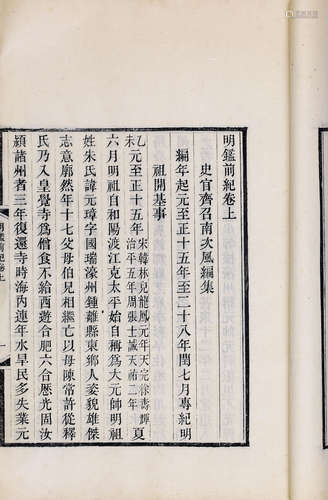 明鑑前紀卷上
史官齊召南次風編集
編年起元至正十五年至二十八年閏七月專紀明
祖開基事
乙未元至正十五年宋韓林兒龍鳳元年天完徐壽輝治平五年周張士誠天祐二年夏
六月明祖自和陽渡江克太平始自稱為大元帥明祖
姓朱氏諱元璋字國瑞濠州鍾離縣東鄉人姿貌雄傑
志意廓然年十七父母伯兄相繼亡以母陳常許從釋
氏乃入皇覺寺為僧食不給西遊合肥六合歷光固汝
潁諸州者三年復還寺時海內連年水旱民多失業元
明鑑前紀卷上
一